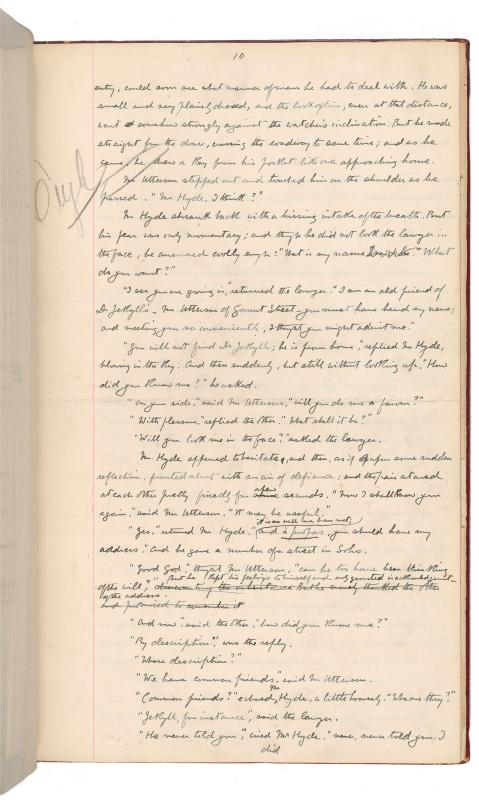 10
entry, could soon see what manner of man he had to deal with. He was
small and very plainly dressed, and the look of him, even at that distance,
went somehow strongly against the watcher's inclination. But he made
straight for the door, crossing the roadway to save time; and as he
came, he drew a key from his pocket like one approaching home.
Mr Utterson stepped out and touched him on the shoulder as he
passed. "Mr Hyde, I think?"
Mr Hyde shrank back with a hissing intake of the breath. But
his fear was only momentary; and though he did not look the lawyer in
the face, he answered coolly enough: "That is my name. What
do you want?"
"I see you are going in," returned the lawyer. "I am an old friend of
Dr Jekyll's – Mr Utterson of Gaunt Street – you must have heard my name;
and meeting you so conveniently, I thought you might admit me."
"You will not find Dr Jekyll; he is from home," replied Mr Hyde,
blowing in the key. And then suddenly, but still without looking up, "How
did you know me?" he asked.
"On your side," said Mr Utterson, "will you do me a favour?"
"With pleasure," replied the other. "What shall it be?"
"Will you let me see your face?" asked the lawyer.
Mr Hyde appeared to hesitate, and then, as if upon some sudden
reflection, fronted about with an air of defiance; and the pair stared
at each other pretty fixedly for a few seconds. "Now I shall know you
again," said Mr Utterson. "It may be useful."
"Yes," returned Mr Hyde, "it is as well we have met;
and à propos, you should have my
address." And he gave a number of a street in Soho.
"Good God," thought Mr Utterson, "can he too have been thinking
of the will?" But he kept his feelings to himself and only grunted in acknowledgment
of the address.
and promised to remember it
"And now" said the other, "how did you know me?"
"By description", was the reply.
"Whose description?"
"We have common friends," said Mr Utterson.
"Common friends?" echoed Mr Hyde, a little hoarsely. "Who are they?"
"Jekyll, for instance", said the lawyer.
"He never told you", cried Mr Hyde. "never, never told you. I
did